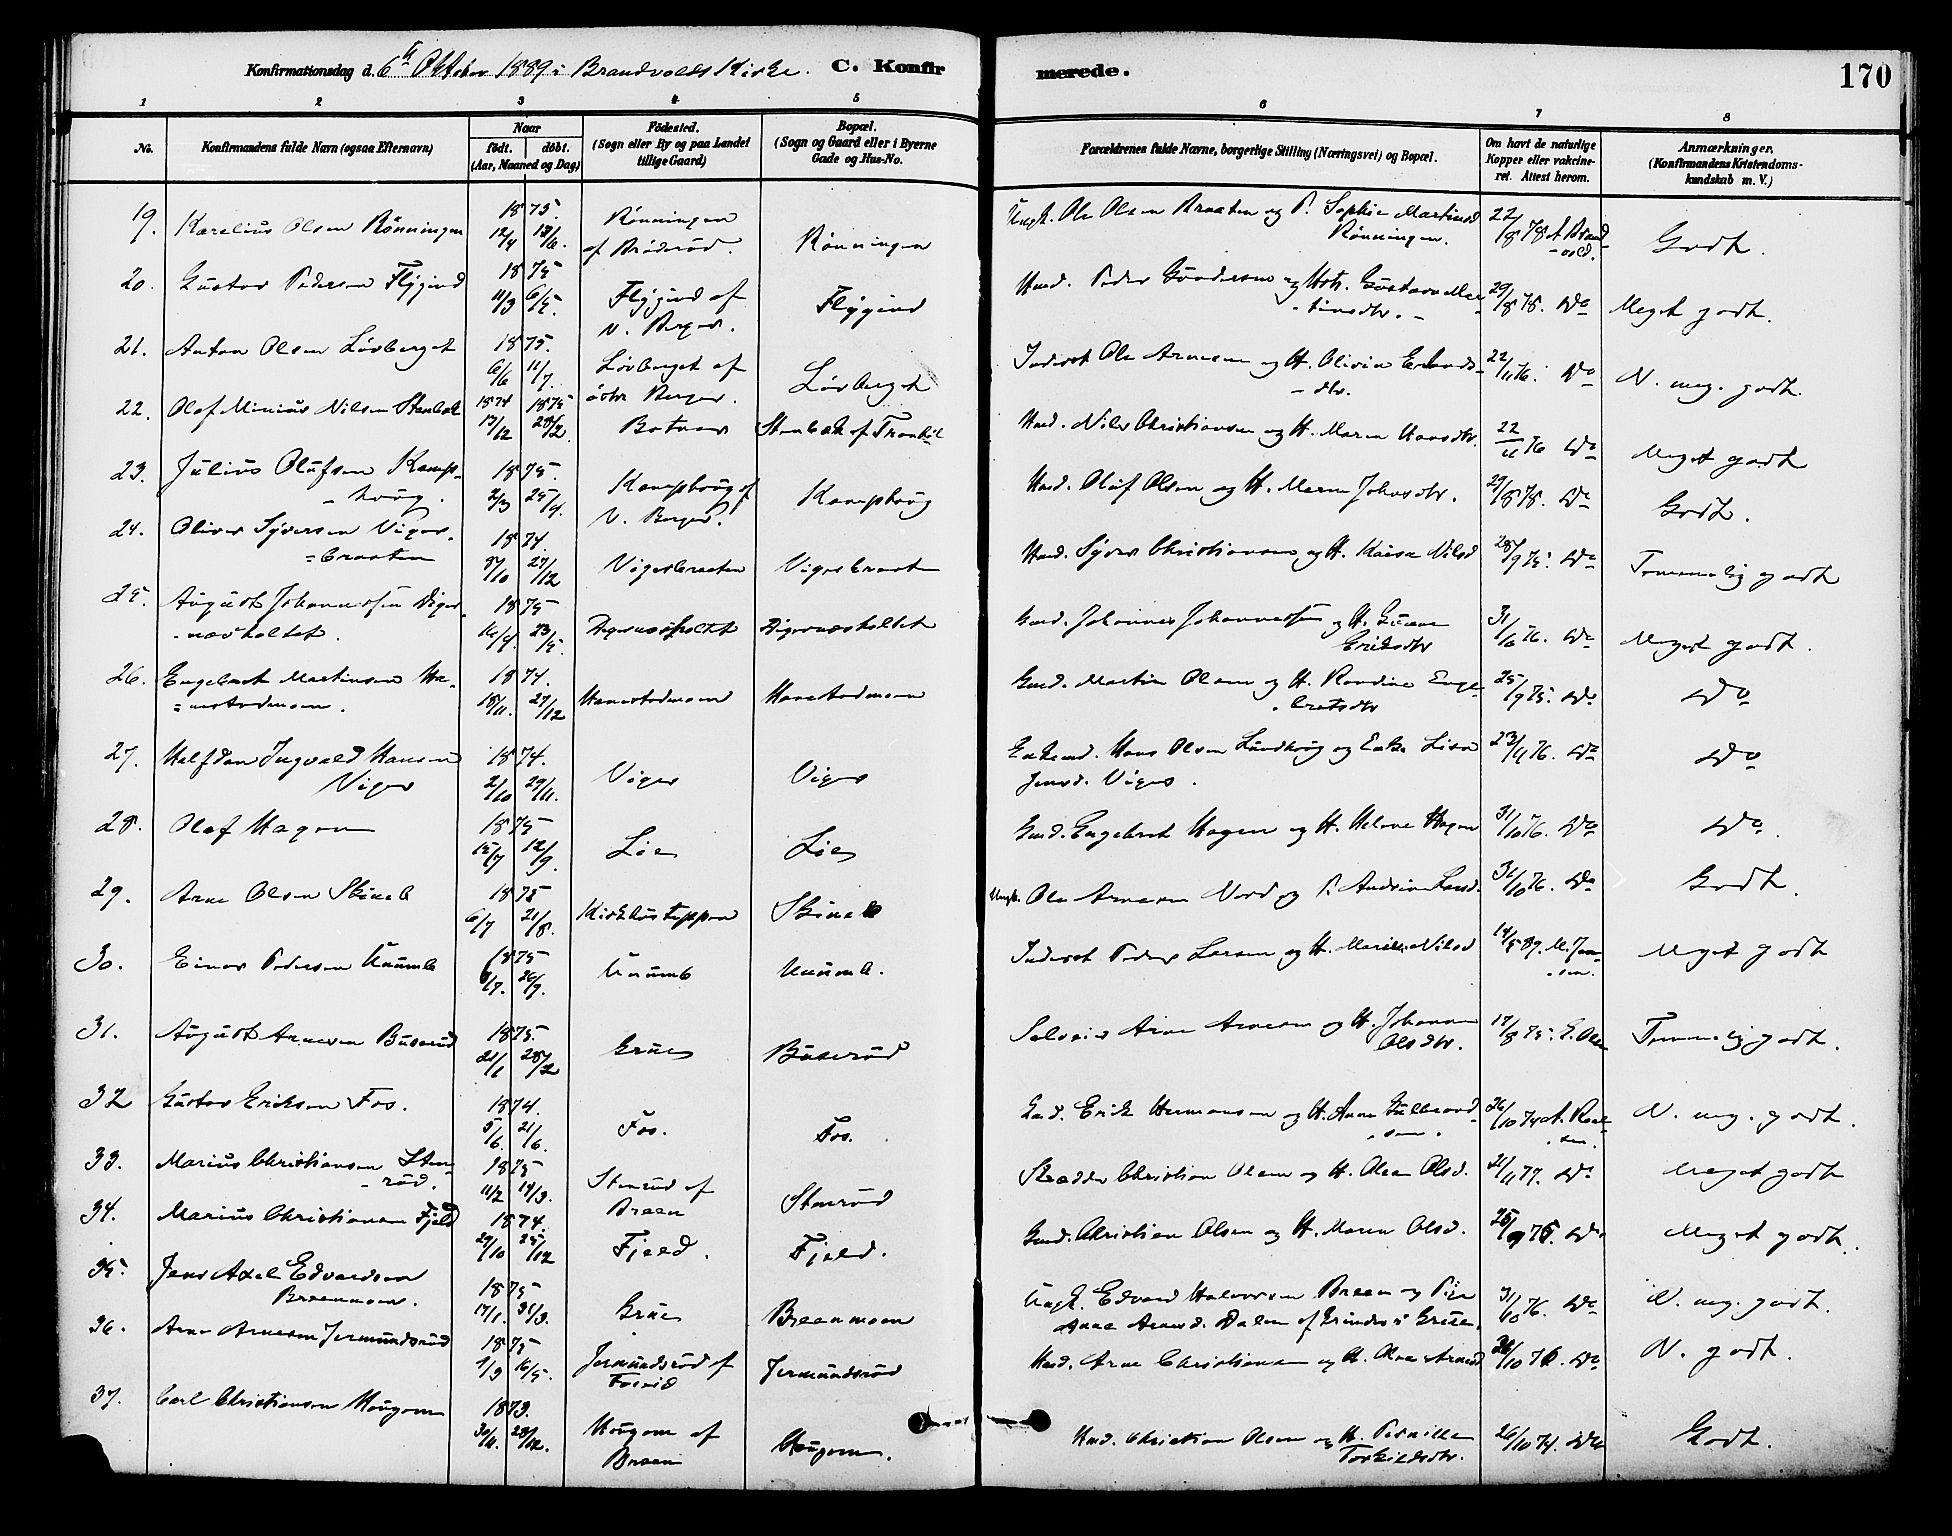 Konfirmationsdag d. 6te Oktober 1889 i Brandvolds Kirke. C. Konfirmerede. 170
1 2 3 4 5 6 7 8
No. Konfirmandens fulde Navn (ogsaa Efternavn) Naar født. døbt. (Aar, Maaned og Dag) Födested. (Sogn eller By og paa Landet tillige Gaard) Bopæl. (Sogn og Gaard eller i Byerne Gade og Hus-No. Forældrenes fulde Navne, borgerlige Stilling (Næringsvei) og Bopæl. Om havt de naturlige Kopper eller vakcineret. Attest herom. Anmærkninger. (Konfirmandens Kristendomskundskab m. V.)
19. Karelius Olsen Rönningen 1875. 12/4 13/6. Rönningen af Bröderöd. Rönningen Ungk. Ole Olsen Braaten og P. Sophie Martinsd Rönningen. 22/8 78 A. Brandvold. Godt.
20. Gustav Pedersen Flÿgind 1875 11/3 6/5. Flÿgind af N. Berger. Flÿgind Hmd. Peder Gundersen og Hstr. Gustava Martinsdtr. 29/8 78. Do Meget godt.
21. Anton Olsen Lövberget 1875. 6/6 11/7. Lövberget af östre Berger. Lövberget Inderst Ole Arnesen og H. Olivia Erlandsdtr. 22/11 76. Do N. meg. godt.
22. Olaf Minius Nilsen Stenbæk 1874 13/12 1875 28/2. Botner Stenbæk af Tranböl Hmd. Nils Christiansen og H. Maren Hansdtr. 22/11 76 Do Meget godt
23. Julius Olufsen Kamphoug. 1875. 2/3 25/4. Kamphoug af N. Berger. Kamphoug Hmd. Oluf Olsen og H. Maren Johnsdtr. 29/8 78. Do Godt.
24. Oliver Syversen Vigerbraaten 1874. 8/10 27/12 Vigerbraaten Vigerbraaten Hmd. Syver Christiansen og H. Kaisa Nilsd 28/9 75. Do Temmelig godt
25. August Johannessen Digernæsholtet. 1875 16/4. 23/5. Digernæsholtet Digernæsholtet Gmd. Johannes Johannessen og H. Eriksdtr 31/6 76. Do Meget godt.
26. Engebret Martinsen Hanestadmoen. 1874. 18/11. 27/12 Hanestadmoen Hanestadmoen Gmd. Martin Olsen og H. Randine Engebretsdtr 25/9 75. Do Do
27. Halfdan Ingvald Hansen Viger 1874. 2/10 29/11. Viger Viger Enkemd. Hans Olsen Lundhoug og Enke Lisa Jensd. Viger. 23/11 76. Do Do
28. Olaf Hagen 1875 15/7 12/9. Lie Lie Gmd. Engebret Hagen og H. Helene Hagen 31/10 76. Do Do.
29. Arne Olsen Skineb 1875 6/7 21/8. Kirkhustoppen Skineb Ungk. Ole Arnesen Nord og P. Andrine Larsd. 31/10 76. Do Godt.
30. Einar Pedersen Unumb 1875 8/7. 26/9. Unumb Unumb. Inderst Peder Larsen og H. Marie Nilsd 14/5 89. M. Jensen. Meget godt
31. August Arnesen Buserud 1875. 21/1 28/2 Grue Buserud Selveier Arne Arnesen og H. Johanne Olsdtr. 17/8 75. E. Olsen Temmelig godt.
32 Gustav Eriksen Fos. 1874. 5/6. 21/6. Fos. Fos. Gmd. Erik Hermansen og H. Anne Gulbrandsen. 26/10 74 N. meg. godt.
33. Marius Christiansen Stenrud. 1875 11/2 14/3. Stenrud af Breen Stenrud Skrædder Christian Olsen og H. Olea Olsd. 21/11 77. Do Meget godt
34. Marius Christiansen Fjeld 1874. 29/10 25/12 Fjeld. Fjeld. Gmd. Christian Olsen og H. Maren Olsd. 25/9 75. Do Meget godt.
35. Jens Axel Edvardsen Breenmoen. 1875 17/1. 31/3. Grue Breenmoen Ungk. Edvard Halvorsen Breen og Pige Anne Arnesd. Dalen af Grinder i Grue. 31/10 76. Do N. meg. godt.
36. Arne Arnesen Jermundsrud 1875 1/3 16/5. Jermundsrud af Jermundsrud Hmd. Arne Christiansen og H. Olea Arnesd 26/10 76. Do N. godt.
37. Carl Christiansen Hougom 1873. 30/11. 28/12. Hougom af Breen Hougom. Hmd. Christian Olsen og H. Pernille Torkildsdtr. 26/10 74. Do Godt.